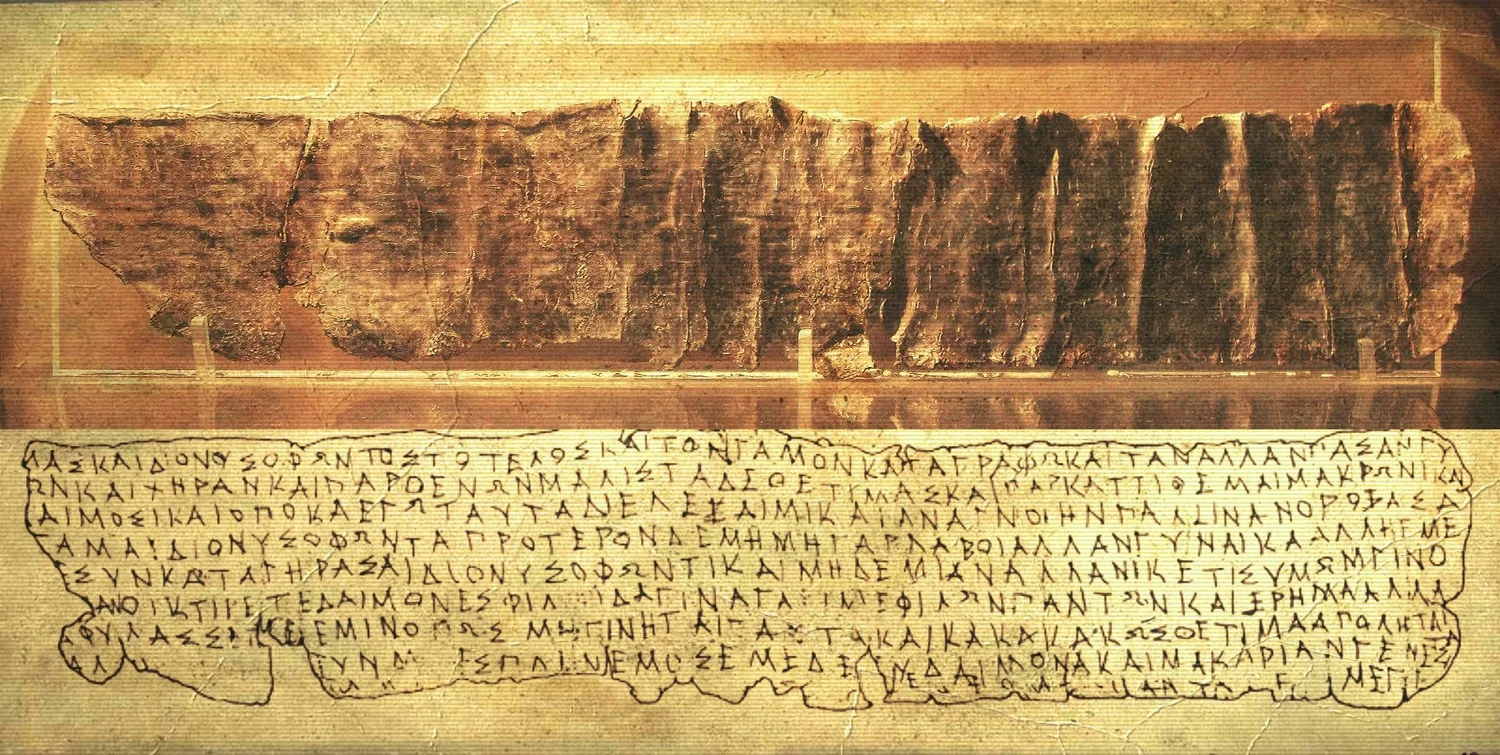 ΜΑΣΚΑΙΔΙΟΝΥΣΟΦΩΝΤΟΣΤΟΤΕΛΟΣΚΑΙΤΟΝΓΑΜΟΝΚΑΤΑΓΡΑΦΩΚΑΙΤΑΝΑΛΛΑΝΠΑΣΑΝΓΥ
ΩΝΚΑΙΧΗΡΑΝΚΑΙΠΑΡΘΕΝΩΝΜΑΛΙΣΤΑΔΕΘΕΤΙΜΑΣΚΑΙΠΑΡΚΑΤΤΙΘΕΜΑΙΜΑΚΡΩΝΙΚΑΙ
ΑΙΜΟΣΙΚΑΙΟΠΟΚΑΕΓΩΤΑΥΤΑΔΙΕΛΕΞΑΙΜΙΚΑΙΑΝΑΓΝΟΙΗΝΠΑΛΙΝΑΝΟΡΟΞΑΣΑ
ΓΑΜΑΙΔΙΟΝΥΣΟΦΩΝΤΑΠΡΟΤΕΡΟΝΔΕΜΗΜΗΓΑΡΛΑΒΟΙΑΛΛΑΝΓΥΝΑΙΚΑΑΛΛΗΕΜΕ
ΕΣΥΝΚΑΤΑΓΗΡΑΣΑΙΔΙΟΝΥΣΟΦΩΝΤΙΚΑΙΜΗΔΕΜΙΑΝΑΛΛΑΝΙΚΕΤΙΣΥΜΩΜΓΙΝΟ
ΑΝΟΙΚΤΙΡΕΤΕΔΑΙΜΟΝΕΣΦΙΛ ΙΔΑΓΙΝΑΓΑ ΙΜΕΦΙΛΩΝΠΑΝΤΩΝΚΑΙΕΡΗΜΑΑΛΛΑ
ΦΥΛΑΣΣΕΤΕΕΜΙΝΟΠΩΣΜΗΓΙΝΗΤΑΙΤΑΥΤΑΚΑΙΚΑΚΑΚΑΚΩΣΘΕΤΙΜΑΑΠΟΛΗΤΑΙ
ΑΛ ΥΝΜ ΕΣΠΛΗΝΕΜΟΣΕΜΕΔΕ ΥΔΑΙΜΟΝΑΚΑΙΜΑΚΑΡΙΑΝΓΕΝΕΣ
ΜΕΓΕ